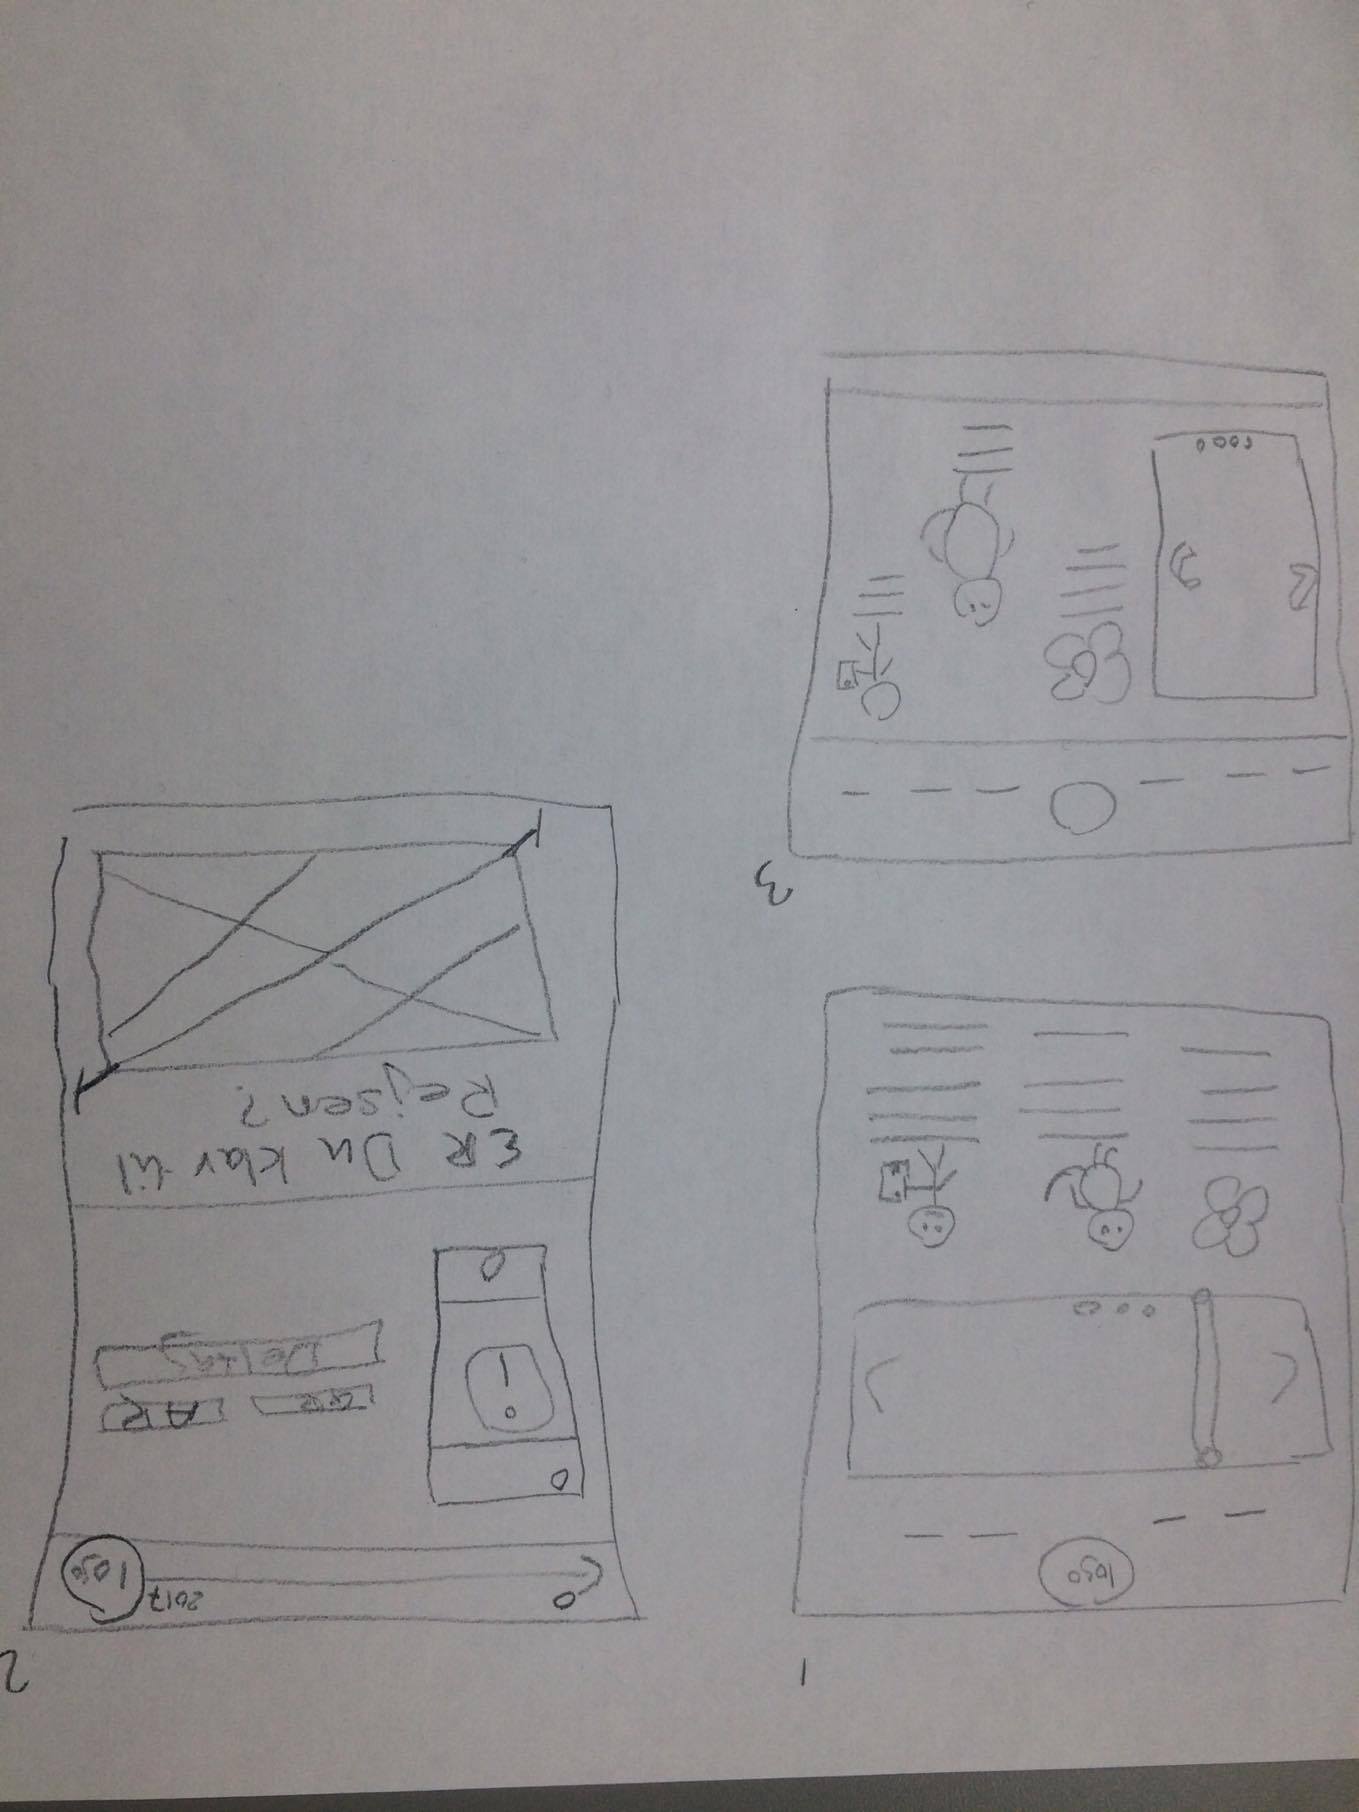 1
logo
2
2017
logo
AR
Deltag
ER Du klar til
Rejsen?
3